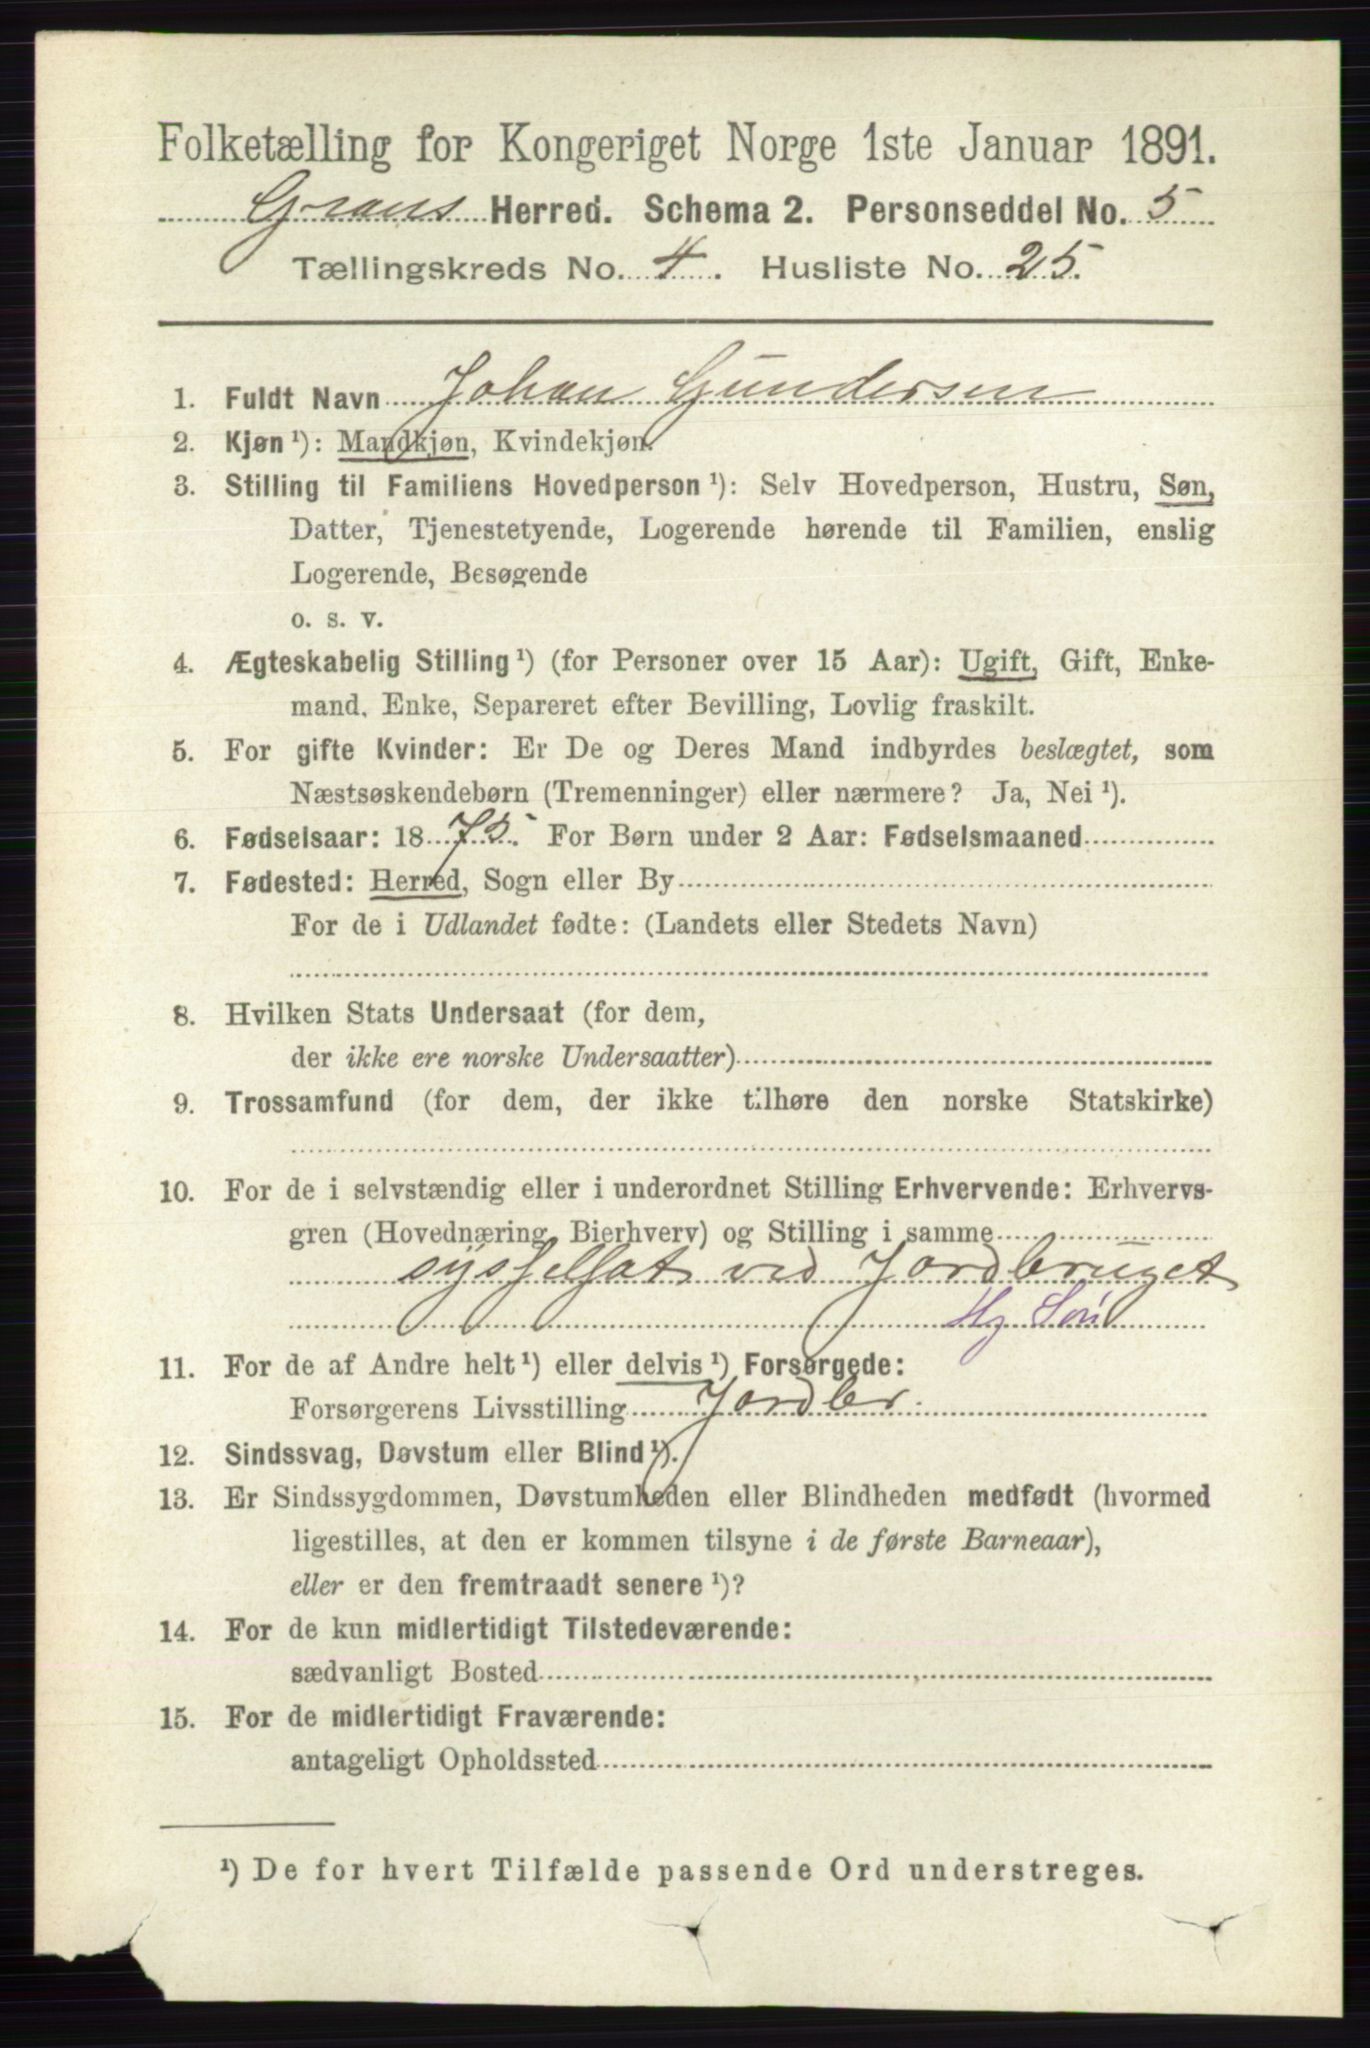 Folketælling for Kongeriget Norge 1ste Januar 1891.
Grans Herred. Schema 2. Personseddel No. 5
Tællingskreds No. 4. Husliste No. 25.
1. Fuldt Navn Johan Gundersen
2. Kjøn ¹): Mandkjøn, Kvindekjøn.
3. Stilling til Familiens Hovedperson ¹): Selv Hovedperson, Hustru, Søn,
Datter, Tjenestetyende, Logerende hørende til Familien, enslig
Logerende, Besøgende
o. s. v.
4. Ægteskabelig Stilling ¹) (for Personer over 15 Aar): Ugift, Gift, Enke-
mand, Enke, Separeret efter Bevilling, Lovlig fraskilt.
5. For gifte Kvinder: Er De og Deres Mand indbyrdes beslægtet, som
Næstsøskendebørn (Tremenninger) eller nærmere? Ja, Nei ¹).
6. Fødselsaar: 1875. For Børn under 2 Aar: Fødselsmaaned
7. Fødested: Herred, Sogn eller By
For de i Udlandet fødte: (Landets eller Stedets Navn)
8. Hvilken Stats Undersaat (for dem,
der ikke ere norske Undersaatter)
9. Trossamfund (for dem, der ikke tilhøre den norske Statskirke)
10. For de i selvstændig eller i underordnet Stilling Erhvervende: Erhvervs-
gren (Hovednæring, Bierhverv) og Stilling i samme
sysselsat ved Jordbruget
Hj Søn
11. For de af Andre helt ¹) eller delvis ¹) Forsørgede:
Forsørgerens Livsstilling Jordbr.
12. Sindssvag, Døvstum eller Blind ¹).
13. Er Sindssygdommen, Døvstumheden eller Blindheden medfødt (hvormed
ligestilles, at den er kommen tilsyne i de første Barneaar),
eller er den fremtraadt senere ¹)?
14. For de kun midlertidigt Tilstedeværende:
sædvanligt Bosted
15. For de midlertidigt Fraværende:
antageligt Opholdssted
¹) De for hvert Tilfælde passende Ord understreges.